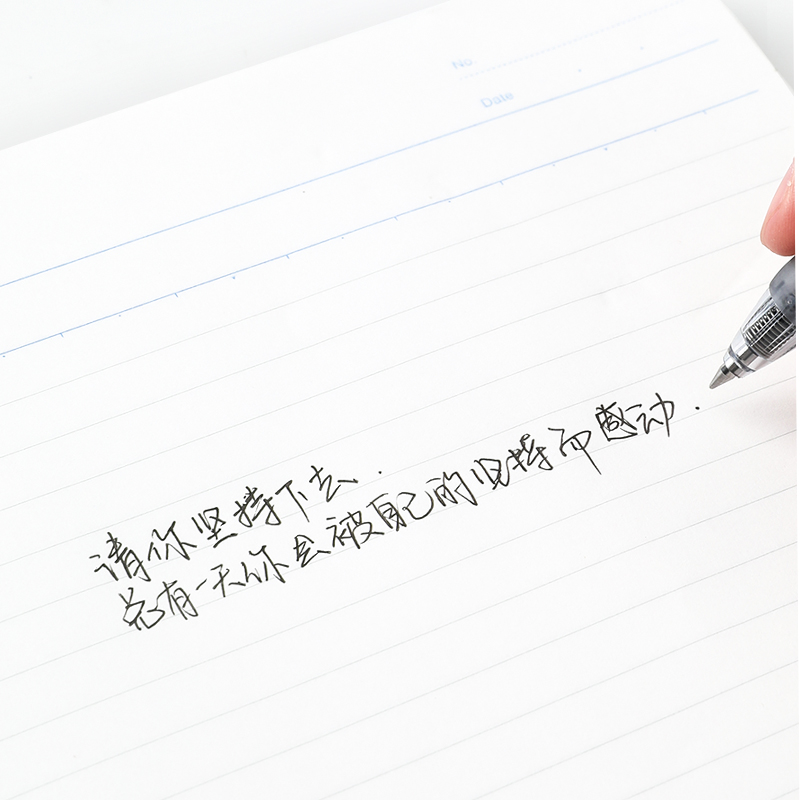 No.
Date
请你坚持下去.
总有一天你会被自己的坚持而感动.